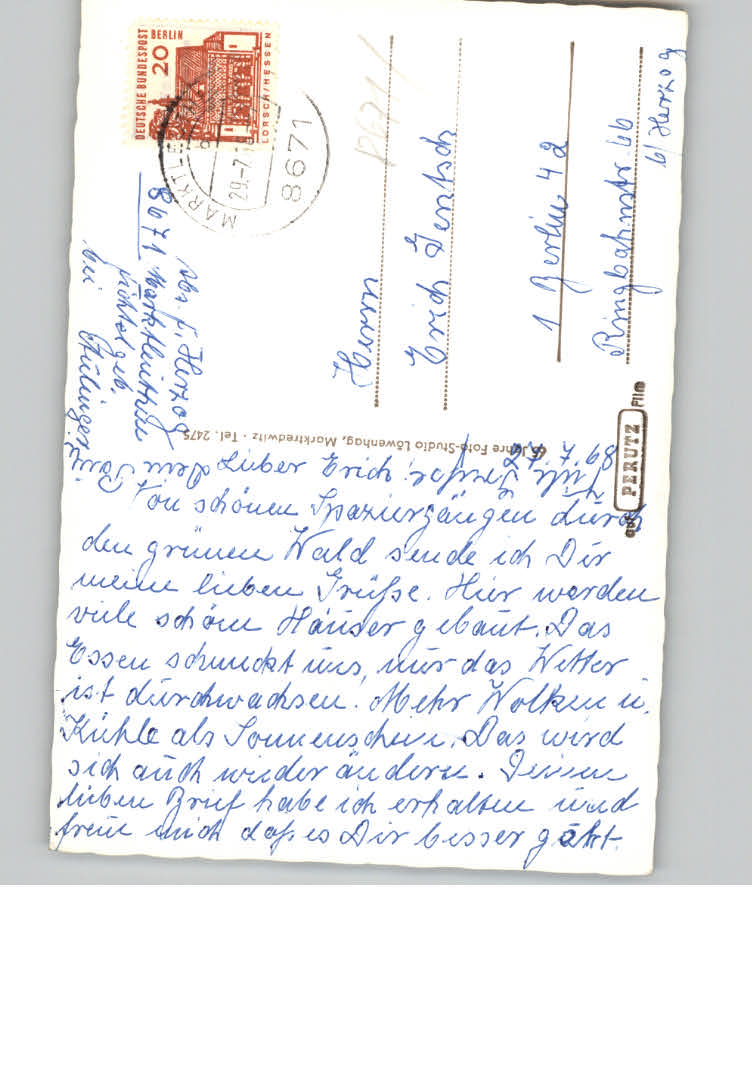 DEUTSCHE BUNDESPOST BERLIN
20
LORSCH/HESSEN
8671
29.-7.
Abs. F. Herzog
8671 Marktleuthen
Fichtelgeb.
bei
Herrn
Erich Jentsch
1 Berlin 42
Ringbahnstr 66
b/ Herzog
Jahre Foto-Studio Löwenhag, Marktredwitz · Tel. 2475
auf PERUTZ Film
27.7.68
Lieber Erich!
Von schönen Spaziergängen durch
den grünen Wald sende ich Dir
meine lieben Grüße. Hier werden
viele schöne Häuser gebaut. Das
Essen schmeckt uns, nur das Wetter
ist durchwachsen. Mehr Wolken u.
Kühle als Sonnenschein. Das wird
sich auch wieder ändern. Deinen
lieben Brief habe ich erhalten und
freue mich daß es Dir besser geht.